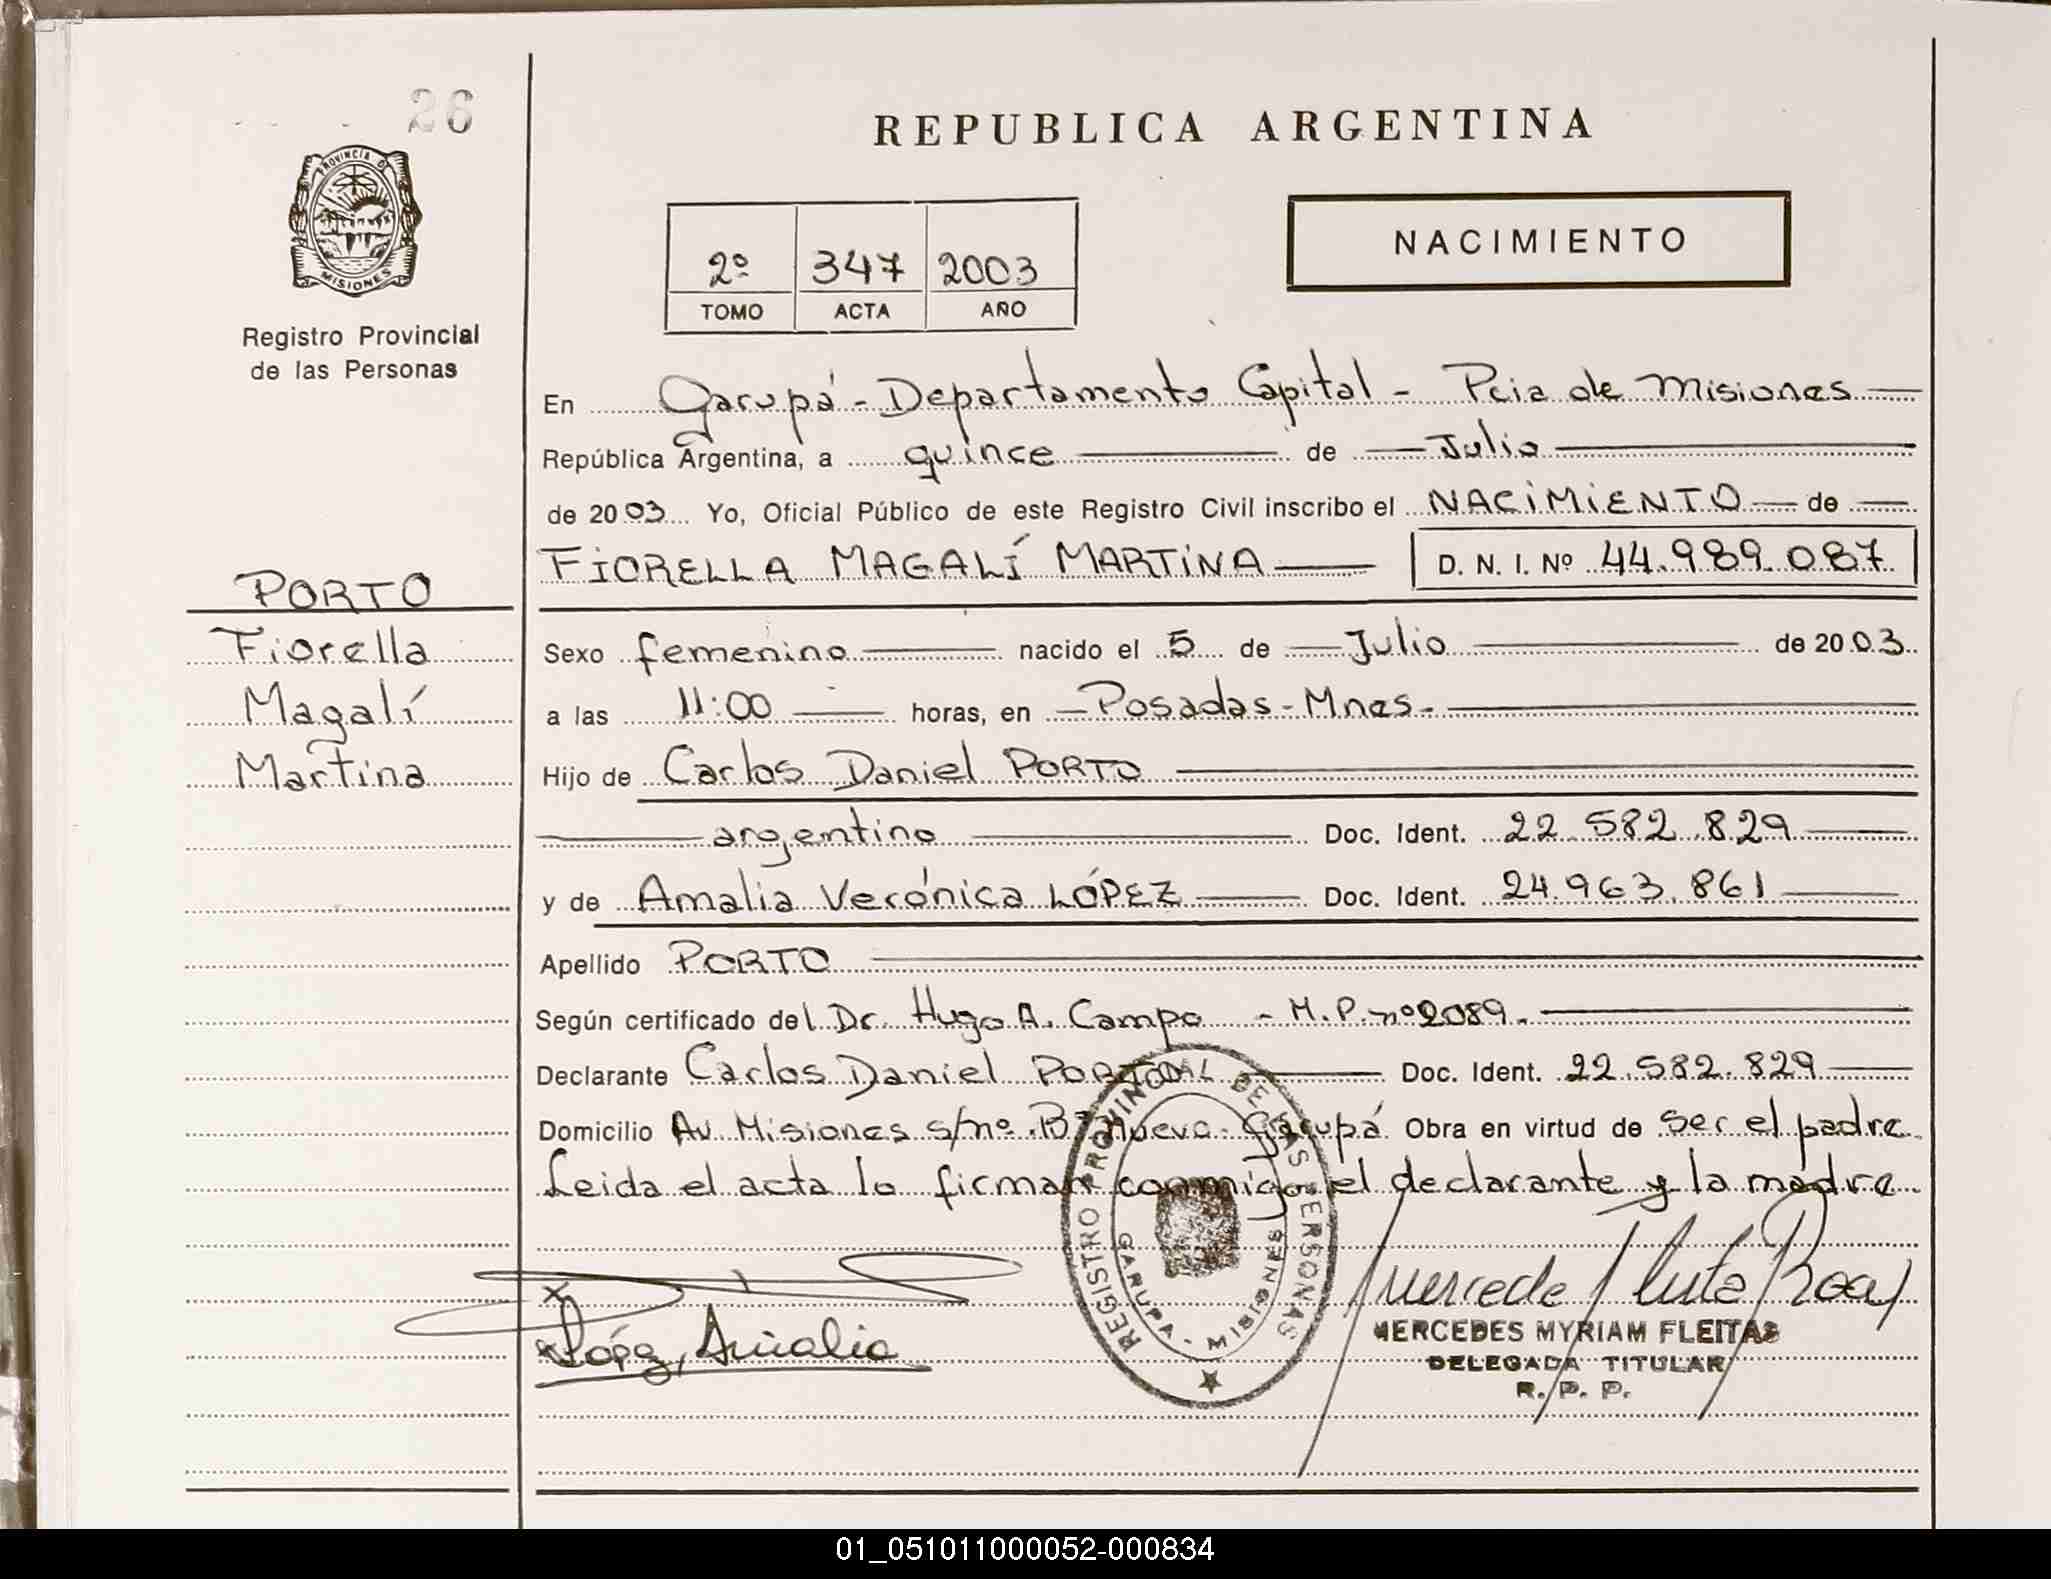 26
PROVINCIA DE
MISIONES
Registro Provincial
de las Personas
REPUBLICA ARGENTINA
2º 347 2003
TOMO ACTA AÑO
NACIMIENTO
En Garupá - Departamento Capital - Pcia de Misiones
República Argentina, a quince de Julio
de 2003 Yo, Oficial Público de este Registro Civil inscribo el NACIMIENTO de
FIORELLA MAGALÍ MARTINA D. N. I. Nº 44.989.087
PORTO
Fiorella
Magalí
Martina
Sexo femenino nacido el 5 de Julio de 2003
a las 11:00 horas, en Posadas - Mnes.
Hijo de Carlos Daniel PORTO
argentino Doc. Ident. 22.582.829
y de Amalia Verónica LÓPEZ Doc. Ident. 24.963.861
Apellido PORTO
Según certificado del Dr. Hugo A. Campo - M.P. nº 2089.
Declarante Carlos Daniel PORTO Doc. Ident. 22.582.829
Domicilio Av. Misiones s/nº. Bº Nuevo - Garupá Obra en virtud de ser el padre
Leida el acta lo firman conmigo el declarante y la madre
REGISTRO PROVINCIAL DE LAS PERSONAS
GARUPA - MISIONES
López, Amalia
MERCEDES MYRIAM FLEITAS
DELEGADA TITULAR
R. P. P.
01_051011000052-000834